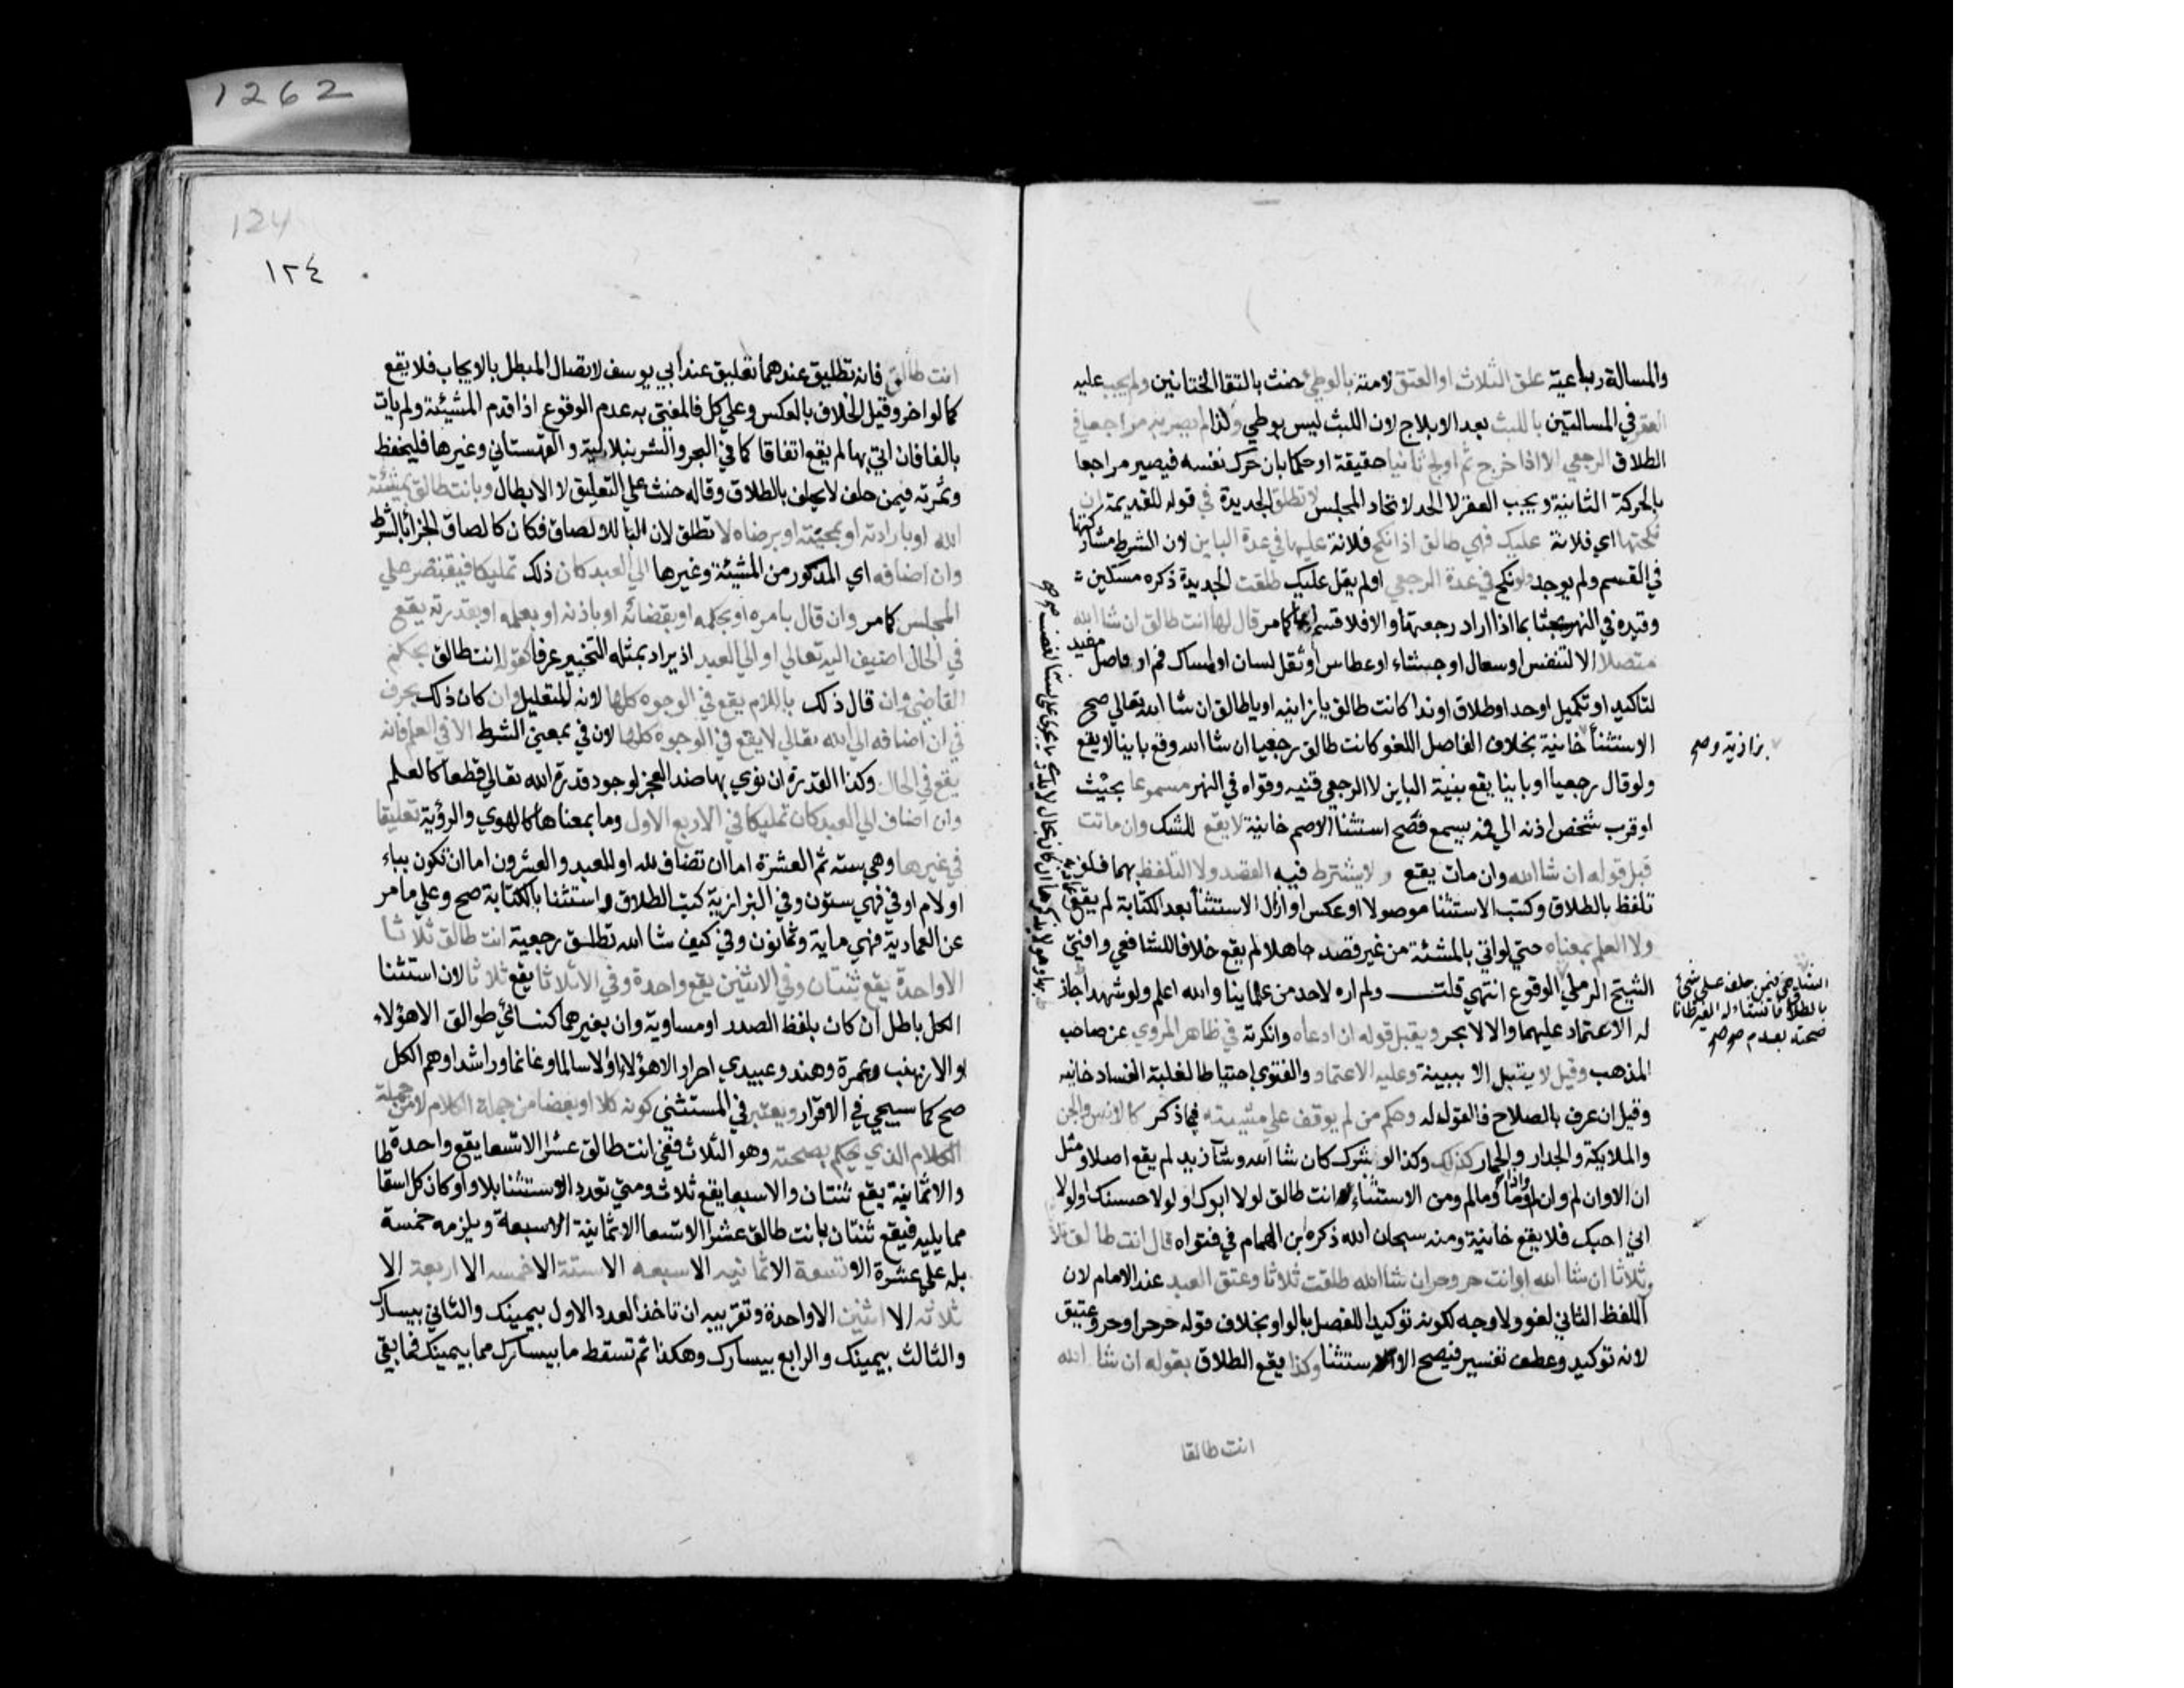 1262
والمسالة رباعية علق الثلاث او العتق لامته بالوطئ حنث بالتقا الختانين ولم يجب عليه
العقر في المسالتين باللبث بعد الايلاج لان اللبث ليس بوطي ولذا لم يصر به مراجعا في
الطلاق الرجعي الا اذا خرج ثم اولج ثانيا حقيقة او حكما بان حرك نفسه فيصير مراجعا
بالحركة الثانية ويجب العقر لا الحد لاتحاد المجلس لا تطلق الجديدة في قوله للقديمة ان
نكحتها اي فلانة عليك فهي طالق اذا نكح فلانة عليها في عدة الباين لان الشرط مشاركتها
في القسم ولم يوجد ولو نكح في عدة الرجعي او لم يقل عليك طلقت الجديدة ذكره مسكين
وقيده في النهر بحثا بما اذا اراد رجعتها والا فلا قسم لها كما مر قال لها انت طالق ان شا الله
متصلا الا لتنفس او سعال او جشاء او عطاس او ثقل لسان او امساك فم او فاصل مفيد
لتاكيد او تكميل او حد او طلاق او ندا كانت طالق يا زانيه او يا طالق ان شا الله تعالي صح
الاستثنا خانية بخلاف الفاصل اللغو كانت طالق رجعيا ان شا الله وقع باينا لا يقع
بزازية وصح
ولو قال رجعيا او باينا يقع بنية الباين لا الرجعي قنيه وقواه في النهر مسموعا بحيث
لو قرب شخص اذنه الي فيه يسمع فصح استثنا الاصم خانية لا يقع للشك وان ماتت
قبل قوله ان شا الله وان مات يقع ولا يشترط فيه القصد ولا التلفظ بهما فلو
تلفظ بالطلاق وكتب الاستثنا موصولا او عكس او ازال الاستثنا بعد الكتابة لم يقع
ولا العلم بمعناه حتي لو اتي بالمشئة من غير قصد جاهلا لم يقع خلافا للشافعي وافتي
الشيخ الرملي الوقوع انتهي قلت ولم اره لاحد من علماينا والله اعلم ولو شهد اجاز
الشافعي فيمن حلف علي شئ
بالطلاق
صحته بعدم
له الاعتماد عليهما والا لا بحر ويقبل قوله ان ادعاه وانكرته في ظاهر المروي عن صاحب
المذهب وقيل لا يقبل الا ببينة وعليه الاعتماد والفتوي احتياطا لغلبة الفساد خانيه
وقيل ان عرف بالصلاح فالقول له وحكم من لم يوقف علي مشيته فيما ذكر كالانس والجن
والملايكة والجدار والحمار كذلك وكذا لو شرك كان شا الله وشا زيد لم يقع اصلا ومثل
ان الا وان لم واذا وما وما لم ومن الاستثناء انت طالق لولا ابوك او لولا حسنك او لولا
اني احبك فلا يقع خانية ومنه سبحان الله ذكره ابن الهمام في فتواه قال انت طالق ثلاثا
وثلاثا ان شا الله او انت حر وحر ان شا الله طلقت ثلاثا وعتق العبد عند الامام لان
اللفظ الثاني لغو ولا وجه لكونه توكيدا للفصل بالواو بخلاف قوله حر حر او حر وعتيق
لانه توكيد وعطف تفسير فيصح الاستثنا وكذا يقع الطلاق بقوله ان شا الله
انت طالقا
124
١٢٤
انت طالق فانه تطليق عندهما تعليق عند ابي يوسف لاتصال المبطل بالايجاب فلا يقع
كما لو اخر وقيل الخلاف بالعكس وعلي كل فالمفتي به عدم الوقوع اذا قدم المشيئة ولم يات
بالفا فان اتي بها لم يقع اتفاقا كما في البحر والشرنبلالية والقهستاني وغيرها فليحفظ
وثمرته فيمن حلف لا يحلف بالطلاق وقاله حنث علي التعليق لا الابطال وبانت طالق بمشئة
الله او بارادته او بمحبته او برضاه لا تطلق لان البا للالصاق فكان كالصاق الجزا بالشرط
وان اضافه اي المذكور من المشيئة وغيرها الي العبد كان ذلك تمليكا فيقتصر علي
المجلس كما مر وان قال بامره او بحكمه او بقضائه او باذنه او بعلمه او بقدرته يقع
في الحال اضيف اليه تعالي او الي العبد اذ يراد بمثله التنجيز عرفا كقوله انت طالق بحكم
القاضي وان قال ذلك باللام يقع في الوجوه كلها لانه للتعليل وان كان ذلك بحرف
في ان اضافه الي الله تعالي لا يقع في الوجوه كلها لان في بمعني الشرط الا في العلم فانه
يقع في الحال وكذا القدرة ان نوي بها ضد العجز لوجود قدرة الله تعالي قطعا كالعلم
وان اضاف الي العبد كان تمليكا في الاربع الاول وما بمعناها كالهوي والرؤية تعليقا
في غيرها وهي سته ثم العشرة اما ان تضاف لله او للعبد والعشرون اما ان تكون بباء
او لام او في فهي ستون وفي البزازية كتب الطلاق واستثنا بالكتابة صح وعلي ما مر
عن العمادية فهي ماية وثمانون وفي كيف شا الله تطلق رجعية انت طالق ثلاثا
الا واحدة يقع ثنتان وفي الا ثنتين يقع واحدة وفي الا ثلاثا يقع ثلاثا لان استثنا
الكل باطل ان كان بلفظ الصدر او مساويه وان بغيرهما كنسائي طوالق الا هؤلاء
او الا زينب وعمرة وهند وعبيدي احرار الا هؤلاء او الا سالما وغانما وراشدا وهم الكل
صح كما سيجي في الاقرار ويعتبر في المستثني كونه كلا او بعضا من جملة الكلام لا من جملة
الكلام الذي يحكم بصحته وهو الثلاث ففي انت طالق عشرا الا تسعا يقع واحدة
والا ثمانية يقع ثنتان والا سبعا يقع ثلاث ومتي تعدد الاستثنا بلا واو كان كل اسقاطا
مما يليه فيقع ثنتان بانت طالق عشرا الا تسعا الا ثمانية الا سبعة ويلزمه خمسة
بله علي عشرة الا تسعة الا ثمانيه الا سبعه الا ستة الا خمسه الا اربعة الا
ثلاثه الا اثنين الا واحدة وتقريبه ان تاخذ العدد الاول بيمينك والثاني بيسارك
والثالث بيمينك والرابع بيسارك وهكذا ثم تسقط ما بيسارك مما بيمينك فما بقي